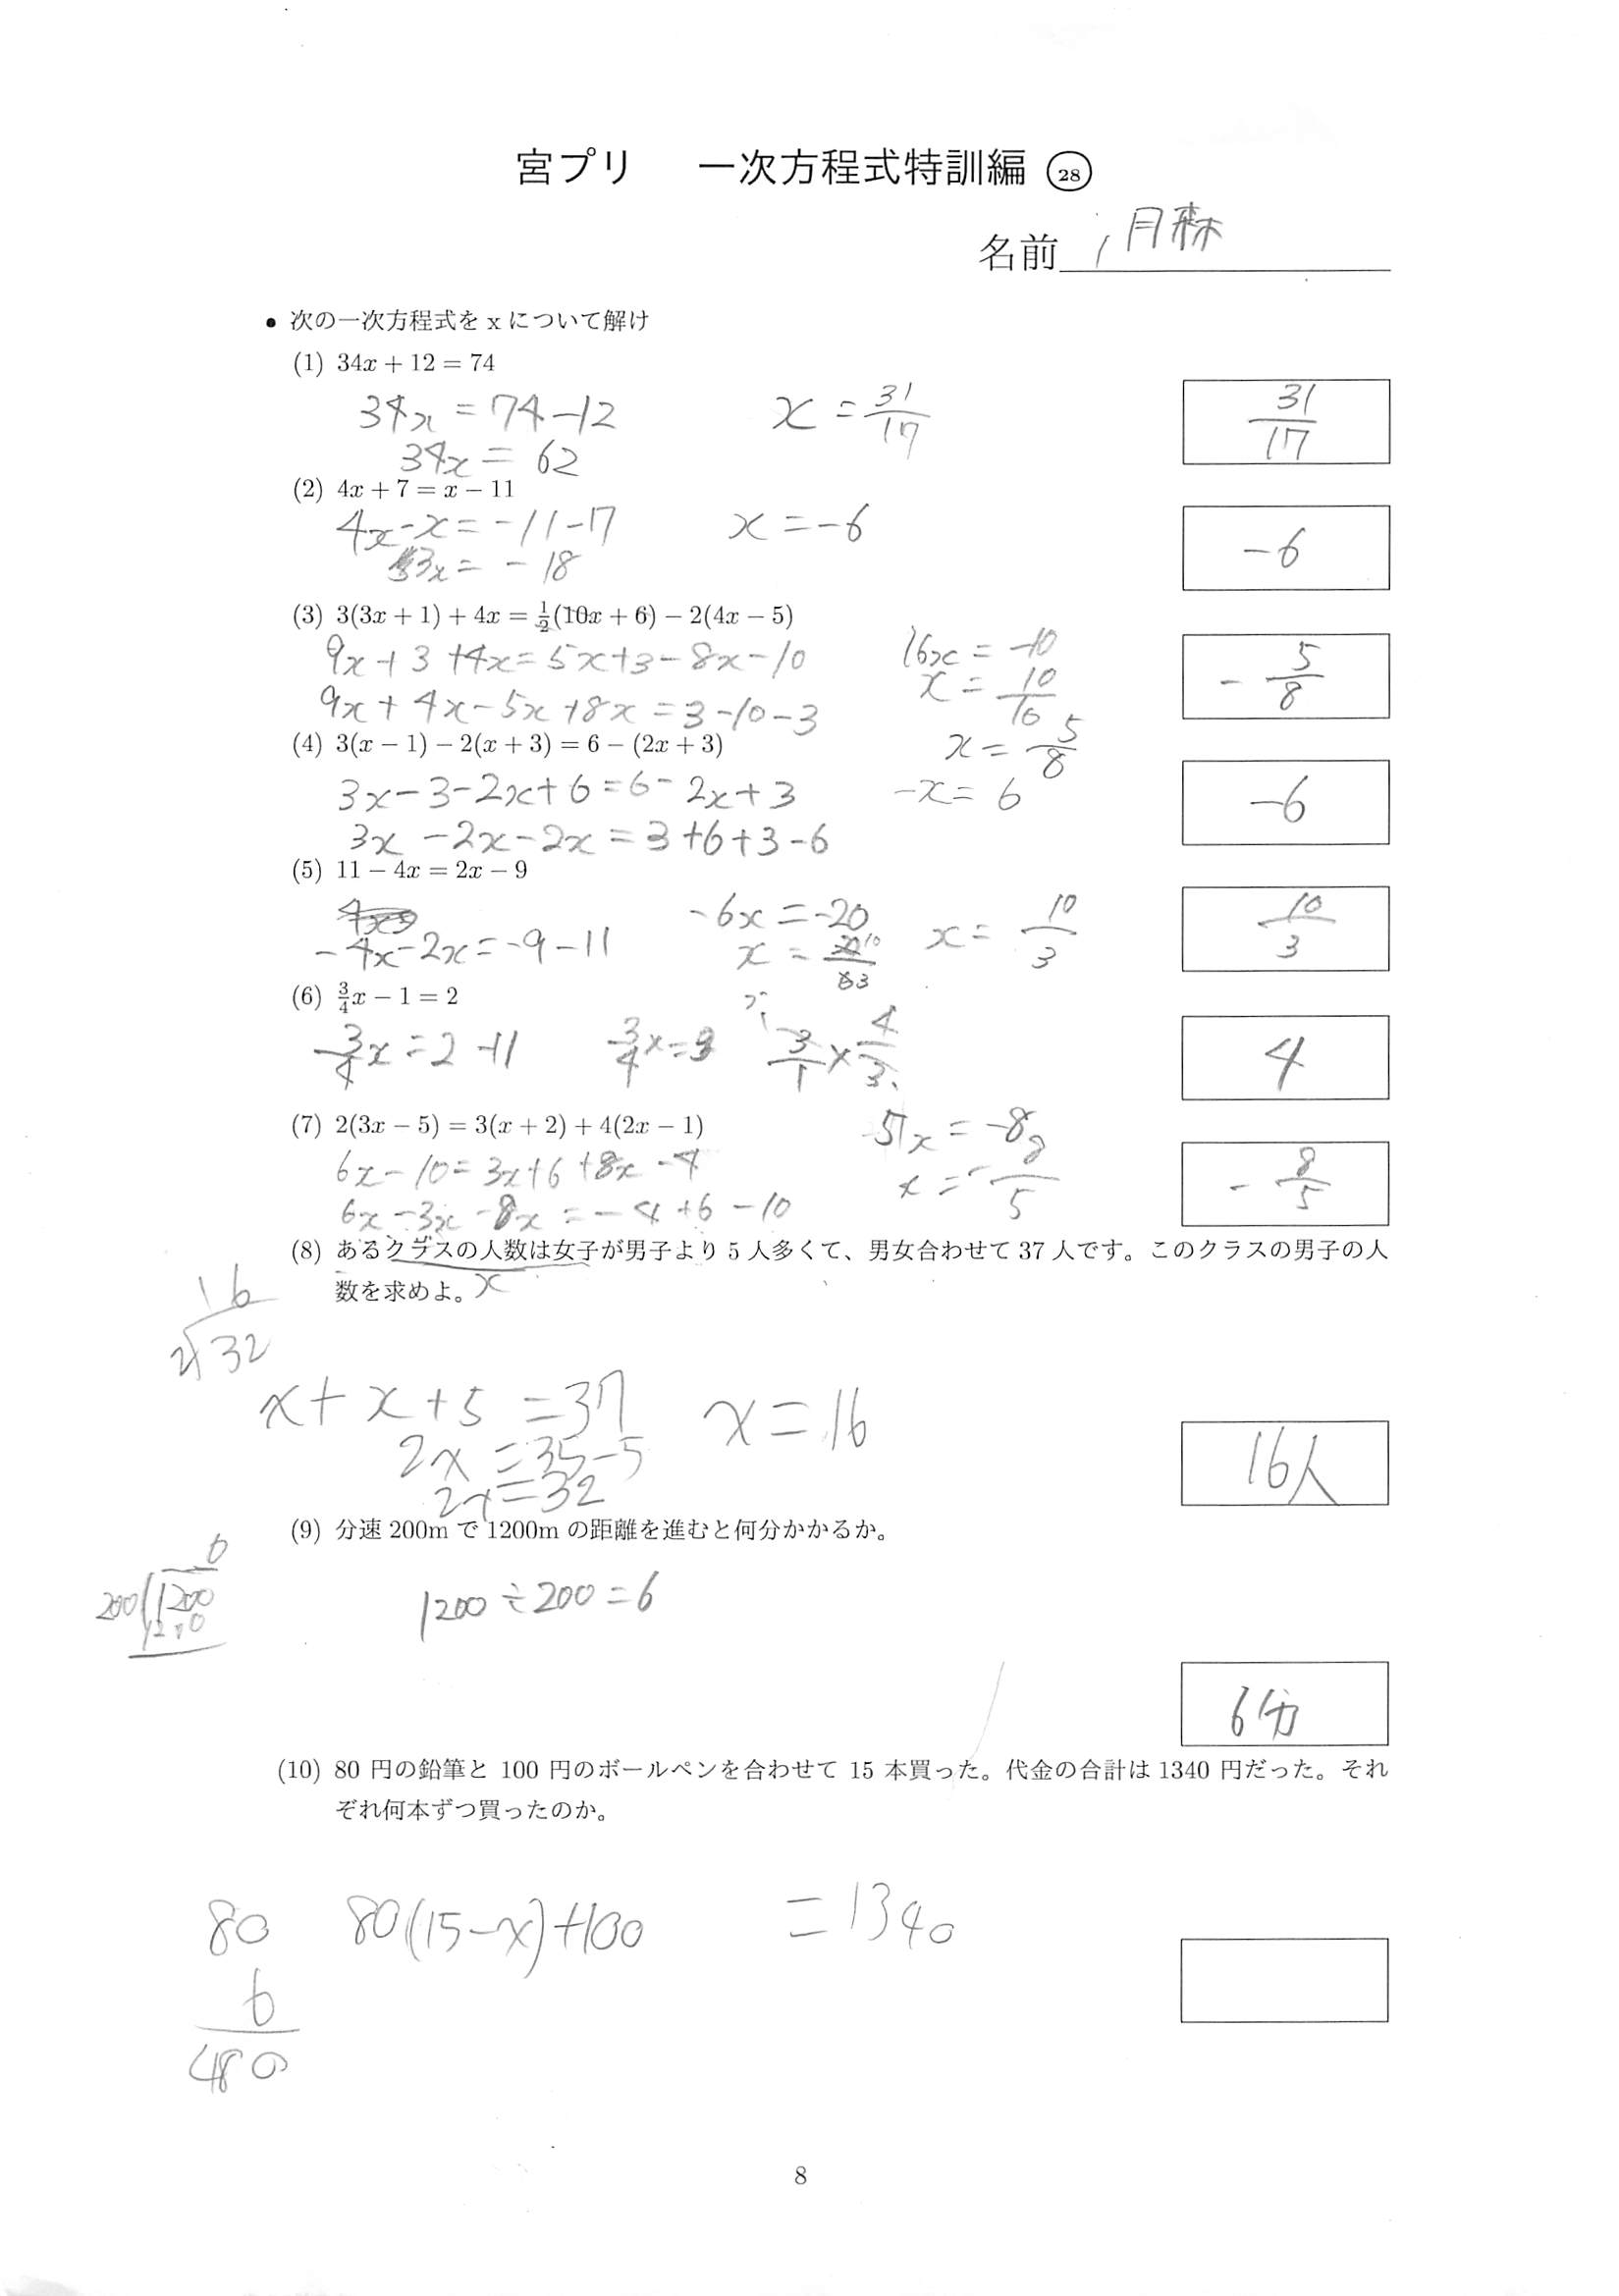 宮プリ 一次方程式特訓編 ㉘
名前 月森
● 次の一次方程式を x について解け
(1) 34x + 12 = 74
34x = 74 - 12
34x = 62
x = 31/17
31/17
(2) 4x + 7 = x - 11
4x - x = -11 - 7
3x = -18
x = -6
-6
(3) 3(3x + 1) + 4x = 1/2(10x + 6) - 2(4x - 5)
9x + 3 + 4x = 5x + 3 - 8x - 10
9x + 4x - 5x + 8x = 3 - 10 - 3
16x = -10
x = 10/16
x = 5/8
- 5/8
(4) 3(x - 1) - 2(x + 3) = 6 - (2x + 3)
3x - 3 - 2x + 6 = 6 - 2x + 3
3x - 2x - 2x = 3 + 6 + 3 - 6
-x = 6
-6
(5) 11 - 4x = 2x - 9
-4x - 2x = -9 - 11
-6x = -20
x = 10/3
10/3
(6) 3/4x - 1 = 2
3/4x = 2 + 1
3/4x = 3
3/1 × 4/3
4
(7) 2(3x - 5) = 3(x + 2) + 4(2x - 1)
6x - 10 = 3x + 6 + 8x - 4
6x - 3x - 8x = -4 + 6 - 10
5x = -8
x = - 8/5
- 8/5
(8) あるクラスの人数は女子が男子より 5 人多くて、男女合わせて 37 人です。このクラスの男子の人
数を求めよ。 x
16
2)32
x + x + 5 = 37
2x = 35 - 5
2x = 32
x = 16
16人
(9) 分速 200m で 1200m の距離を進むと何分かかるか。
6
200)1200
1200
1200 ÷ 200 = 6
6分
(10) 80 円の鉛筆と 100 円のボールペンを合わせて 15 本買った。代金の合計は 1340 円だった。それ
ぞれ何本ずつ買ったのか。
80(15 - x) + 100 = 1340
80
6
480
8